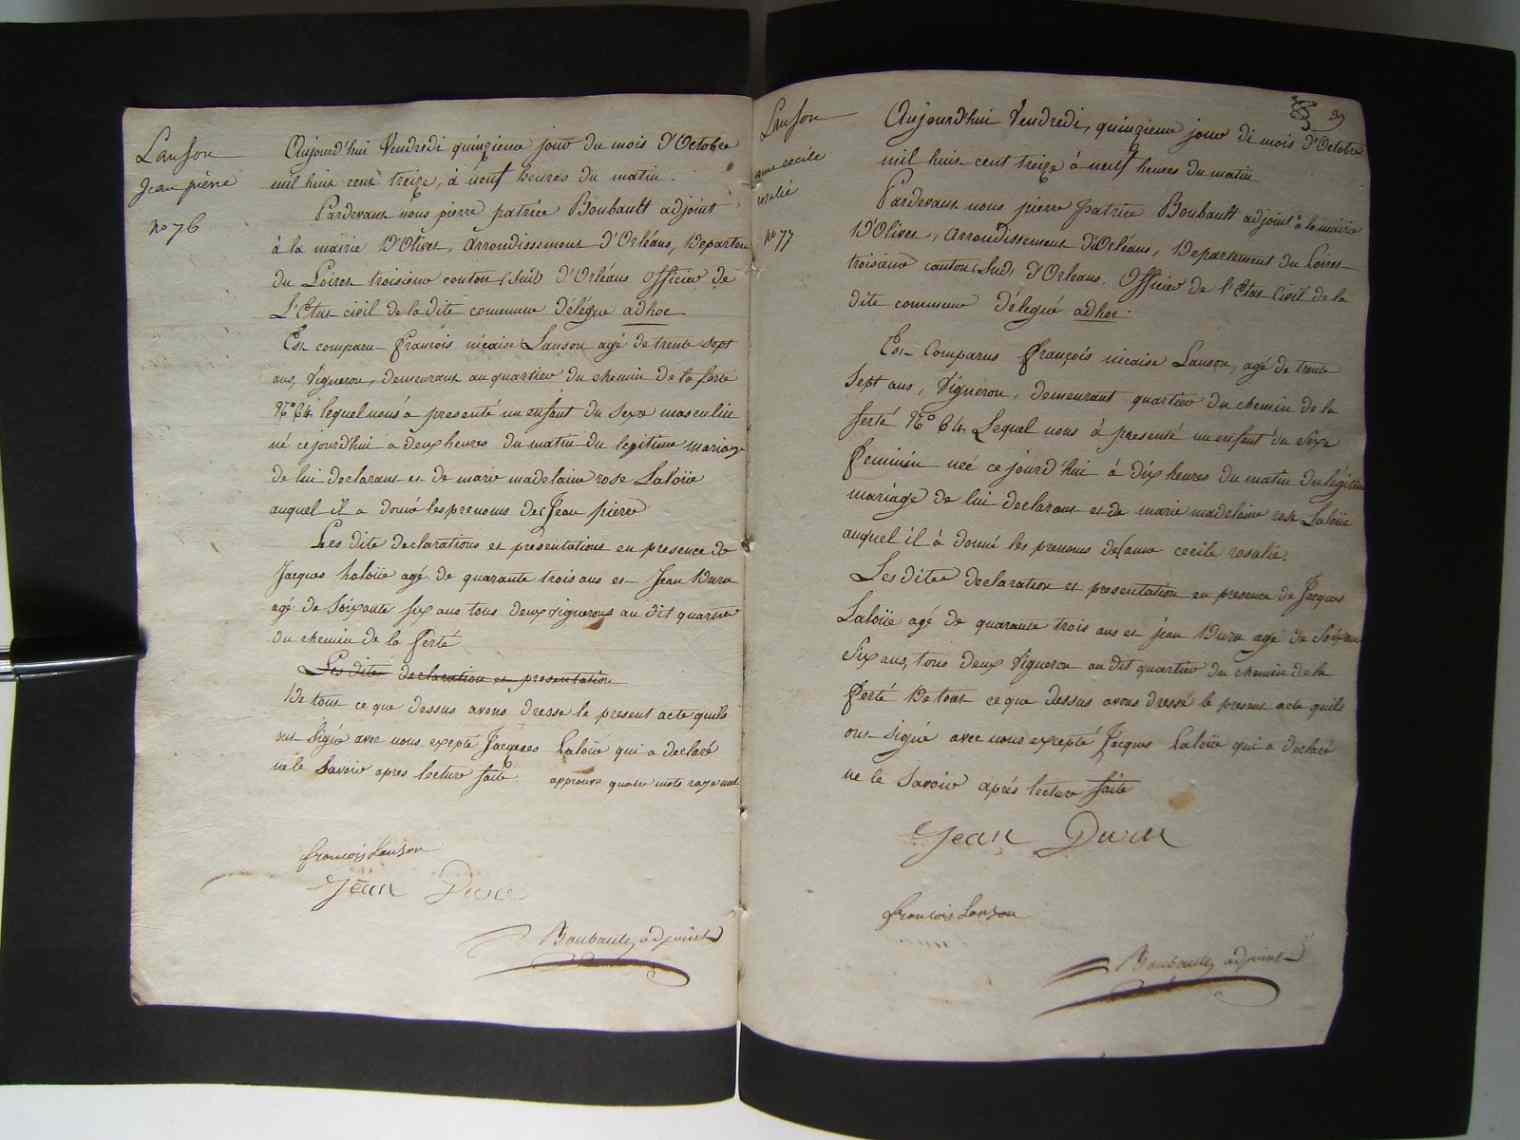 Lanson
Jean pierre
no 76
Aujourd'hui Vendredi quinzieme jour du mois d'Octobre
mil huit cent treize, à neuf heures du matin.
Pardevant nous pierre patrice Boubault adjoint
à la mairie D'Olivet, arrondissement d'Orléans, Departem
du Loiret troisieme canton (Sud) d'Orléans officier de
L'Etat civil de la dite commune délégué adhoc
Est comparu françois nicaise Lanson agé de trente sept
ans, Vigneron, demeurant au quartier du chemin de la ferté
N° 64 lequel nous a presenté un enfant du Sexe masculin
né cejourd'hui a deux heures du matin du legitime mariage
de lui declarant et de marie madelaine rose Laloüe
auquel il a donné les prenoms de Jean pierre
Les dite declarations et presentations en presence de
Jacques haloüe agé de quarante trois ans et Jean Duru
agé de Soixante six ans tous deux vignerons au dit quartier
du chemin de la ferté
Les dites declaration et presentation
De tout ce que dessus avons dresse le present acte quils
ont Signé avec nous excepté Jacques Laloüe qui a declaré
ne le Savoir apres lecture faite approuvé quatre mots rayé nul
françois Lanson
Jean Duru
Boubault adjoint
39
Lanson
anne cecile
rosalie
no 77
Aujourd'hui Vendredi, quinzieme jour di mois d'Octobre
mil huit cent treize à neuf heures du matin
Pardevant nous pierre patrice Boubault adjoint à la mairie
D'Olivet, arrondissement d'Orléans, Departement du Loiret
troisieme canton (Sud) d'Orleans. Officier de l'Etat Civil de la
dite commune délegué adhoc.
Est Comparus françois nicaise Lanson, agé de trente
Sept ans, Vigneron, demeurant quartier du chemin de la
ferté N° 64. Lequel nous à presenté un enfant du Sexe
feminin neé ce jourd'hui à dix heures du matin du légitime
mariage de lui declarant et de marie madelaine rose Laloüe
auquel il à donné les prenoms de anne cecile rosalie.
Les dites declaration et presentation en presence de Jacques
Laloüe agé de quarante trois ans et jean Duru agé de Soixante
Six ans, tous deux Vigneron au dit quartier du chemin de la
ferté De tout ce que dessus avons dressé le present acte quils
ont Signé avec nous excepté Jacques Laloüe qui a declaré
ne le Savoir aprés lecture faite
Jean Duru
françois Lanson
Boubault adjoint